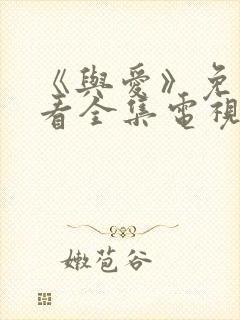 《與愛》免
看全集電視
嫩苞谷